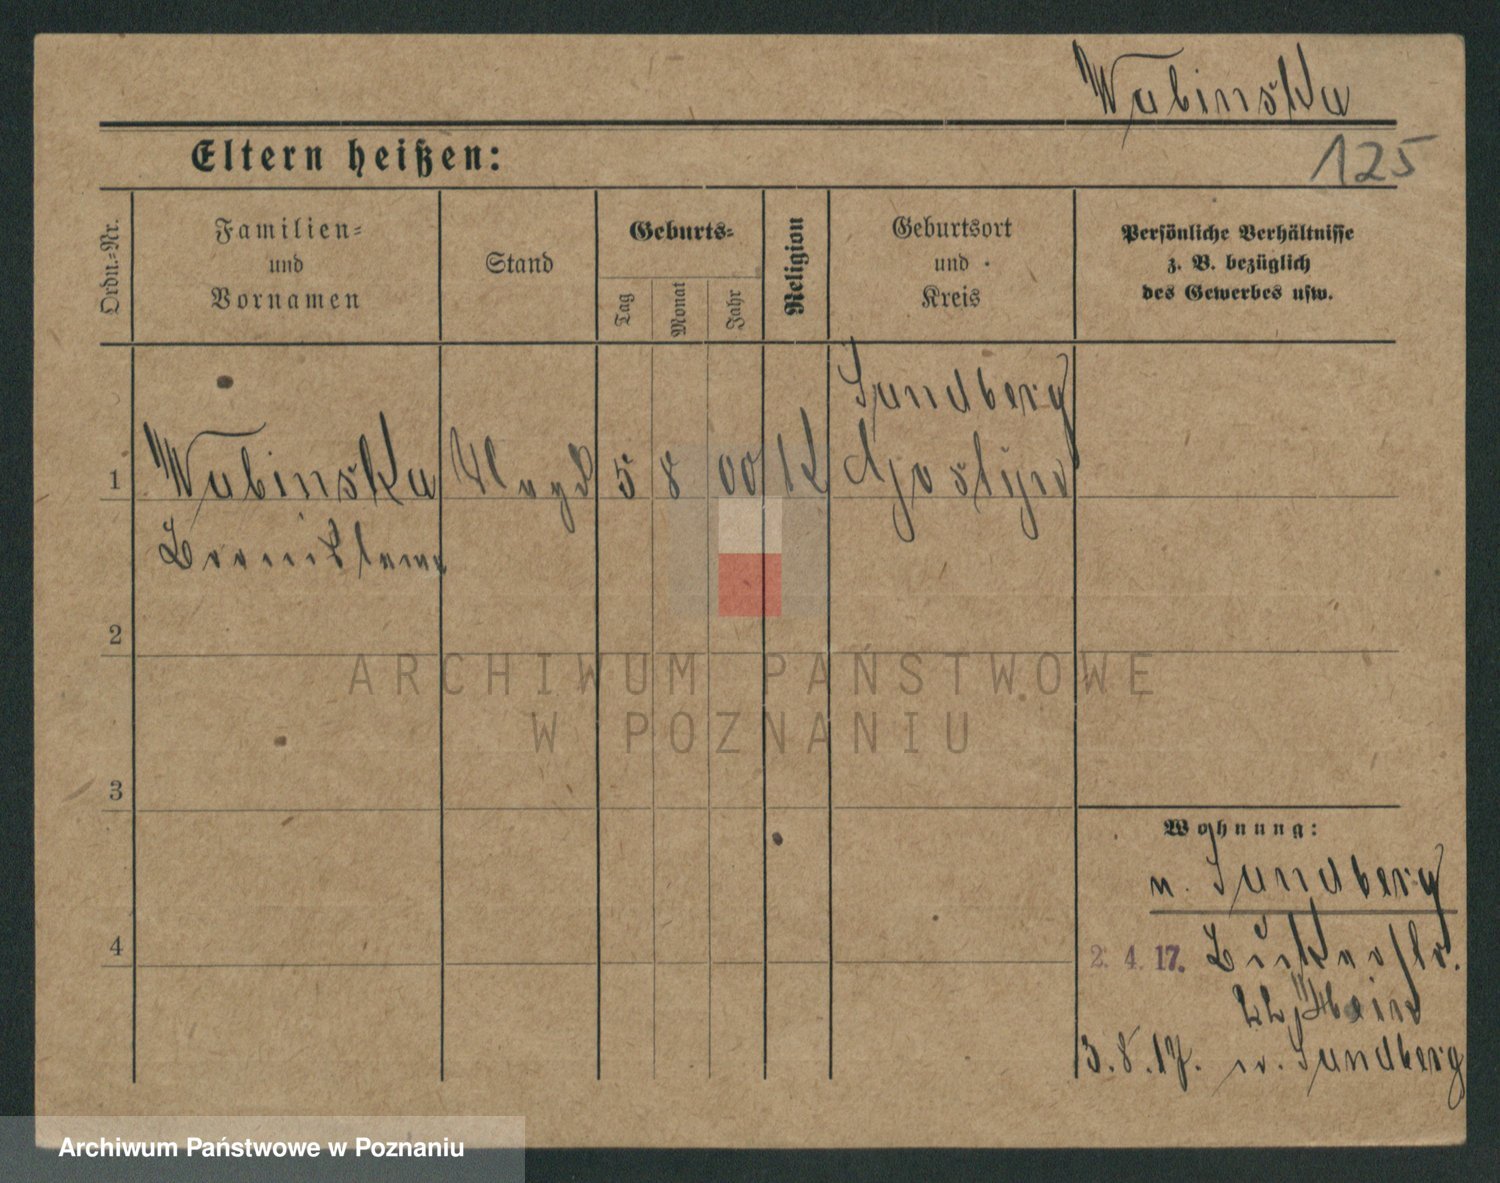 Wabinska
125
Eltern heißen:
Ordn.-Nr.
Familien-
und
Vornamen
Stand
Geburts-
Tag
Monat
Jahr
Religion
Geburtsort
und
Kreis
Persönliche Verhältnisse
z. B. bezüglich
des Gewerbes usw.
Sandberg
1 Wabinska 5 8 00 K Gostyn
Bronislawa
2
ARCHIWUM PAŃSTWOWE
W POZNANIU
3
Wohnung:
n. Sandberg
4
2. 4. 17.
22
3.8.17. n. Sandberg
Archiwum Państwowe w Poznaniu